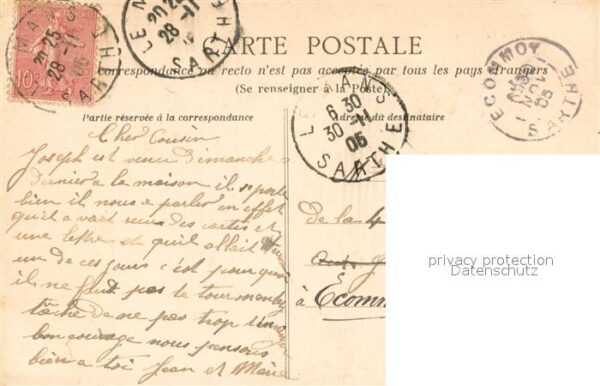 CARTE POSTALE
La correspondance au recto n'est pas acceptée par tous les pays étrangers
(Se renseigner à la Poste)
Partie réservée à la correspondance
Adresse du destinataire
LE MANS
20 25
28 -11
SARTHE
10
LE MANS
20 25
28 -11
SARTHE
LE MANS
6 30
30 -11
05
SARTHE
ECOMMOY
30
NOV
05
SARTHE
Cher Cousin
Joseph est venu dimanche
dernier a la maison il se porte
bien il nous a parler en effet
qu'il avait reçu des cartes et
une lettre et qu'il allait
un de ces jours c'est pourquoi
il ne faut pas te tourmenter
tache de ne pas trop t'ennuyer
bon courage nous pensons
bien a toi Jean et Marie
de la 4
à Ecomm
privacy protection
Datenschutz